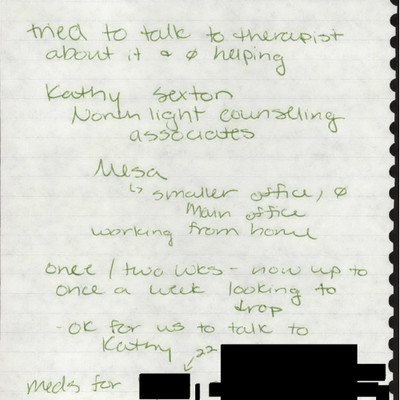 tried to talk to therapist
about it & ∅ helping
Kathy Sexton
North light counseling
associates
Mesa
↳ smaller office, ∅
Main office
working from home
once / two wks - now up to
once a week looking to
drop
- OK for us to talk to
Kathy
22
meds for